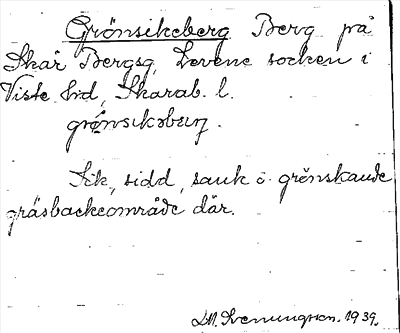 Grönsikeberg Berg på
Skår Bergsg, Levene socken i
Viste hd, Skarab. l.
grö́nsikəbærj.
Sik, sidd, sank o. grönskande
gräsbackeområde där.
1939.